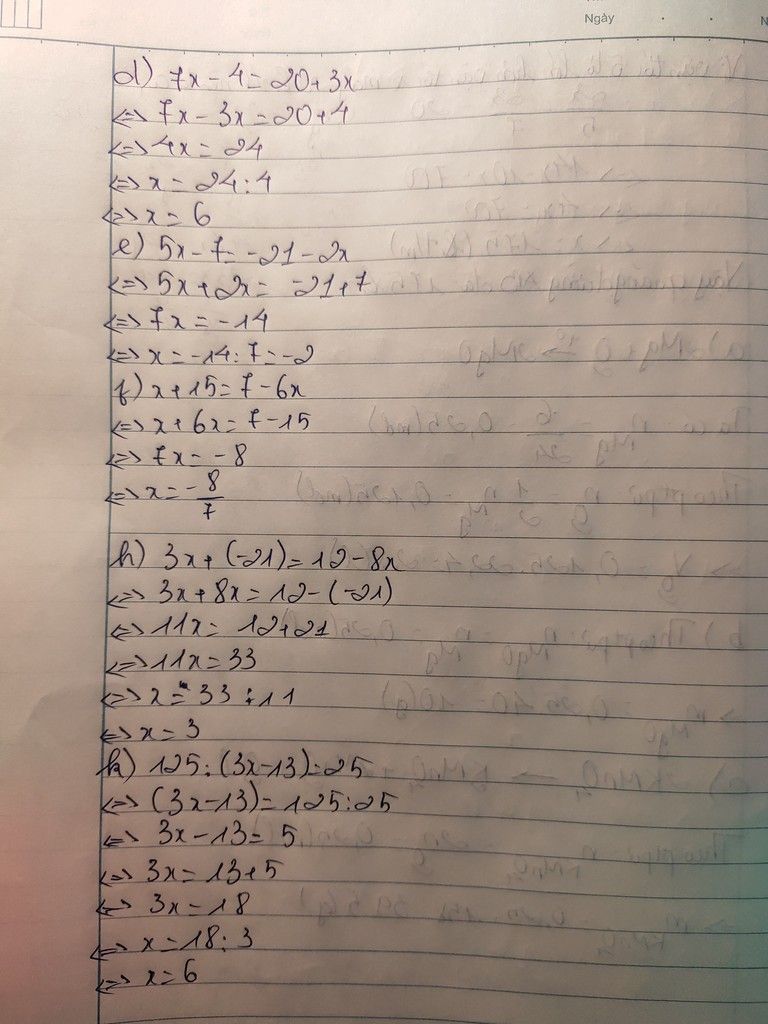 Ngày
d) 7x - 4 = 20 + 3x
<=> 7x - 3x = 20 + 4
<=> 4x = 24
<=> x = 24 : 4
<=> x = 6
e) 5x - 7 = -21 - 2x
<=> 5x + 2x = -21 + 7
<=> 7x = -14
<=> x = -14 : 7 = -2
f) x + 15 = 7 - 6x
<=> x + 6x = 7 - 15
<=> 7x = -8
<=> x = -8/7
h) 3x + (-21) = 12 - 8x
<=> 3x + 8x = 12 - (-21)
<=> 11x = 12 + 21
<=> 11x = 33
<=> x = 33 : 11
<=> x = 3
k) 125 : (3x - 13) = 25
<=> (3x - 13) = 125 : 25
<=> 3x - 13 = 5
<=> 3x = 13 + 5
<=> 3x = 18
<=> x = 18 : 3
<=> x = 6